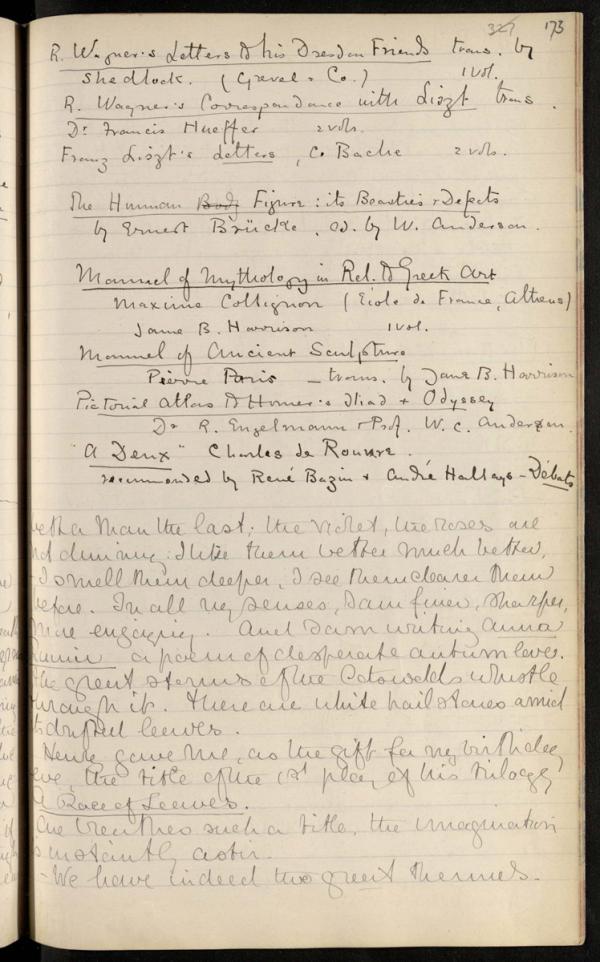 327 173
R. Wagner's Letters to his Dresden Friends trans. by
Shedlock. (Grevel & Co.) 1 Vol.
R. Wagner's Correspondence with Liszt trans.
Dr Francis Hueffer 2 vols.
Franz Liszt's Letters, C. Bache 2 vols.
The Human Body Figure: its Beauties & Defects
by Ernest Brücke, ed. by W. Anderson.
Manuel of Mythology in Rel. to Greek Art
Maxime Collignon (Ecole de France, Athens)
Jane B. Harrison 1 vol.
Manuel of Ancient Sculpture
Pierre Paris — trans. by Jane B. Harrison
Pictorial Atlas to Homer's Iliad & Odyssey
Dr R. Engelmann & Prof. W. C. Anderson.
"A Deux" Charles de Rouvre.
recommended by René Bazin & André Hallays — Débats
than the last; the violet, the roses are
dimmer: I like them better much better,
I smell them deeper, I see them clearer then
before. In all my senses, I am finer, sharper,
more engaging. And I am writing Anna
a poem of desperate autumn love.
The great storms of the Cotswolds whistle
through it. There are white hailstones amid
its drifted leaves.
Henry gave me, as the gift for my birthday
eve, the title of the 1st play of his trilogy
A Race of Leaves.
One breathes such a title, the imagination
is instantly astir.
– We have indeed two great themes.